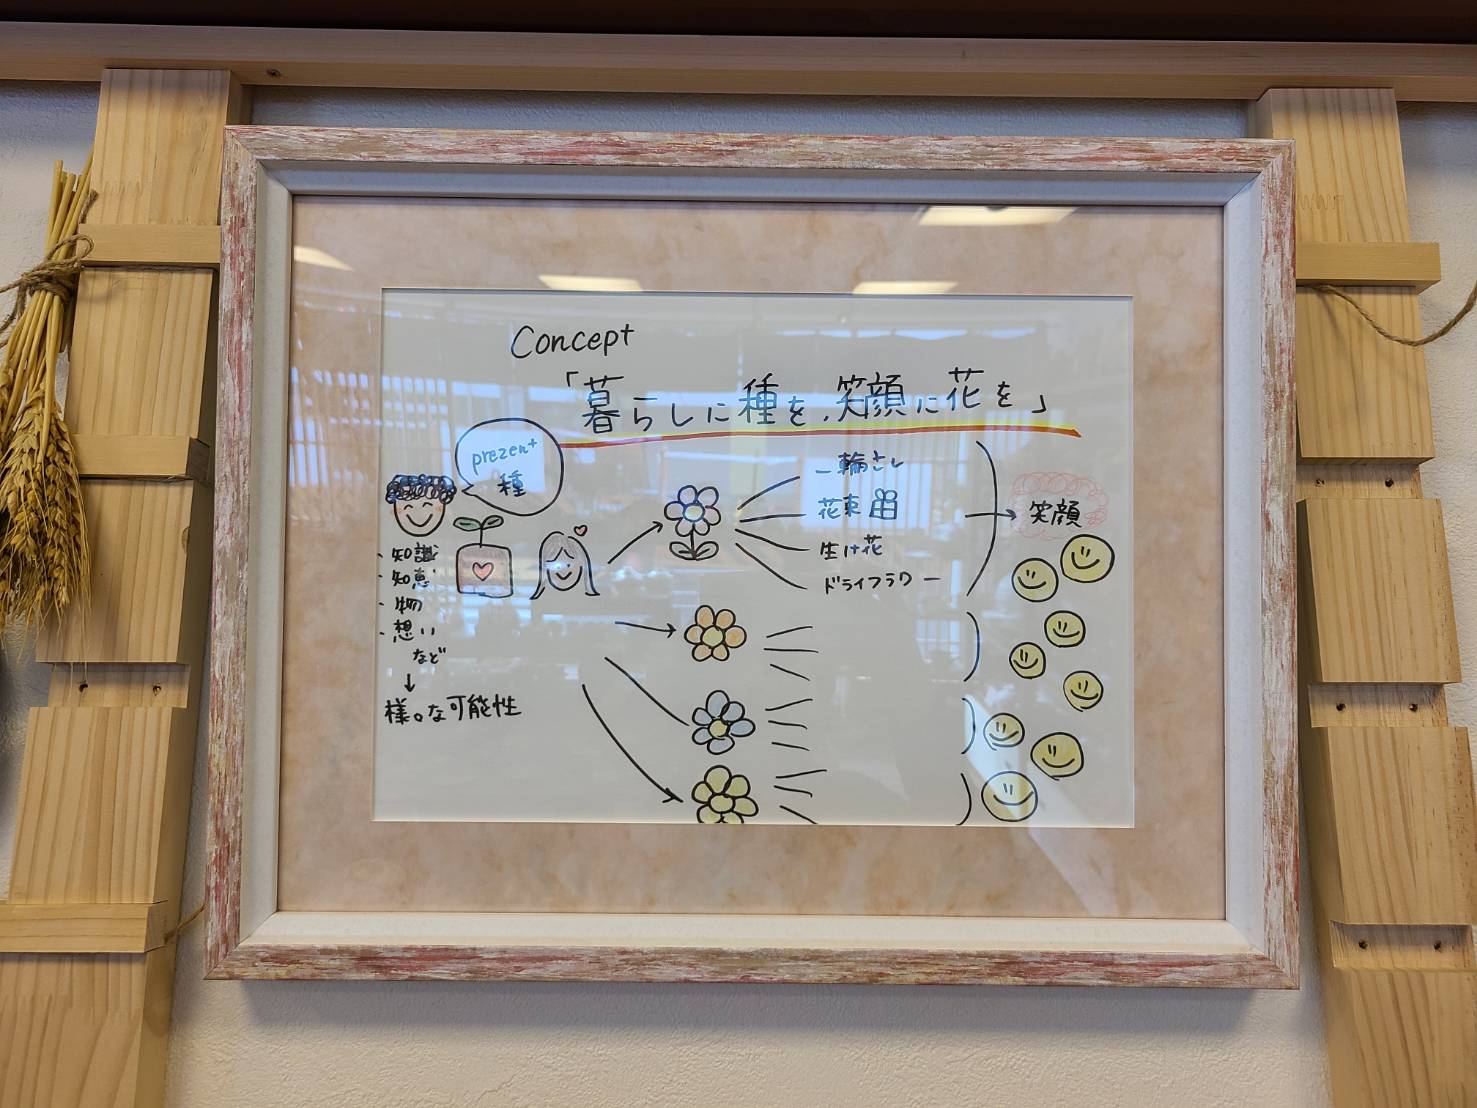 Concept
「暮らしに種を、笑顔に花を」
prezent
種
・知識
・知恵
・物
・想い
など
↓
様々な可能性
一輪さし
花束
生け花
ドライフラワー
笑顔